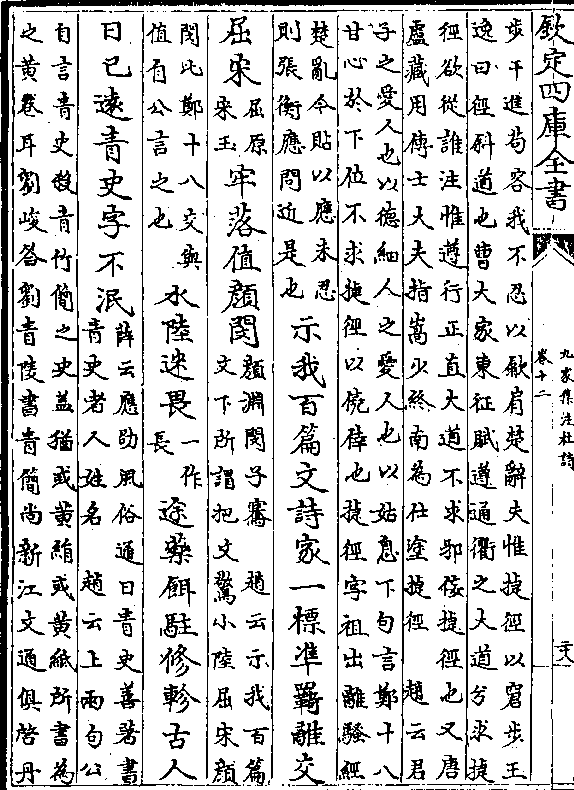 欽定四庫全書
九家集注杜詩
卷十二
步干進苟容我不忍以歘肩楚辭夫惟捷徑以窘步王
逸曰徑斜道也曹大家東征賦遵通衢之大道兮求捷
徑欲從誰注惟遵行正直大道不求邪徑捷徑也又唐
盧藏用傳士大夫指嵩少終南為仕塗捷徑 趙云君
子之愛人也以德細人之愛人也以姑息下句言鄭十八
甘心於下位不求捷徑以僥倖也捷徑字祖出離騷經
楚亂今貼以應未忍
則張衡應問近是也
示我百篇文詩家一標準羈離交
屈宋
屈原
宋玉
牢落值顔閔
顔淵閔子騫 趙云示我百篇
文下所謂把文驚小陸屈宋顔
閔比鄭十八交與
值有公言之也
水陸迷畏
一作
長
途藥餌駐修軫古人
日已遠青史字不泯
薛云應劭風俗通曰青史善著書
青史者人姓名 趙云上兩句公
自言青史殺青竹簡之史蓋猶或黃絹或黃紙所書為
之黃卷耳劉峻答劉青陵書青簡尚新江文通俱啓丹